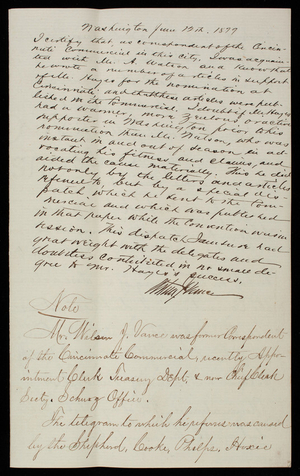 Washington June 12th. 1877
I certify that, as correspondent of the Cincin-
nati Commercial in this city, I was acquain-
ted with Mr. A. Watson, and know that
he wrote a number of articles in support
of Mr. Hayes for the nomination at
Cincinnati and that these articles were pub-
lished in the Commercial. I doubt if Mr. Hayes
had a warmer, more zealous practical
supporter in Washington prior to his
nomination than Mr. Watson, who was
instant in and out of season in ad-
vocating his fitness and claims, and
aided the cause materially. This he did
not only by the letters and articles
referred to but by a special dis-
patch which he sent to the Com-
mercial and which was published
in that paper while the Convention was in
session. This dispatch I am sure had
great weight with the delegates and
doubtless contributed in no small de-
gree to Mr. Hayes's success.
Wilson J. Vance
Note
Mr. Wilson J. Vance was former Correspondent
of the Cincinnate Commercial, recently Appo-
intment Clerk Treasury Dept. & now Chief Clerk
Secty. Schurz Office.
The telegram to which he referes was caused
by the Shepherd, Cooke, Phelps, Hoxie